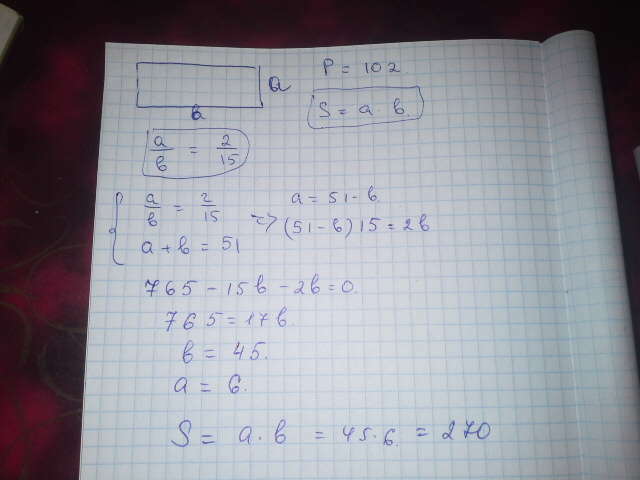 a
b
P = 102
S = a · b.
a/b = 2/15
a/b = 2/15
a + b = 51
=> a = 51 - b.
(51 - b) 15 = 2b
765 - 15b - 2b = 0.
765 = 17b.
b = 45.
a = 6.
S = a · b = 45 · 6 = 270